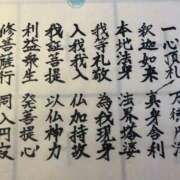 一心頂礼 万徳円満
釋迦如来 真身舎利
本地法身 法界塔婆
我等礼敬 為我現身
入我我入 仏加持故
我證菩提 以仏神力
利益衆生 発菩提心
修菩薩行 同入円寂